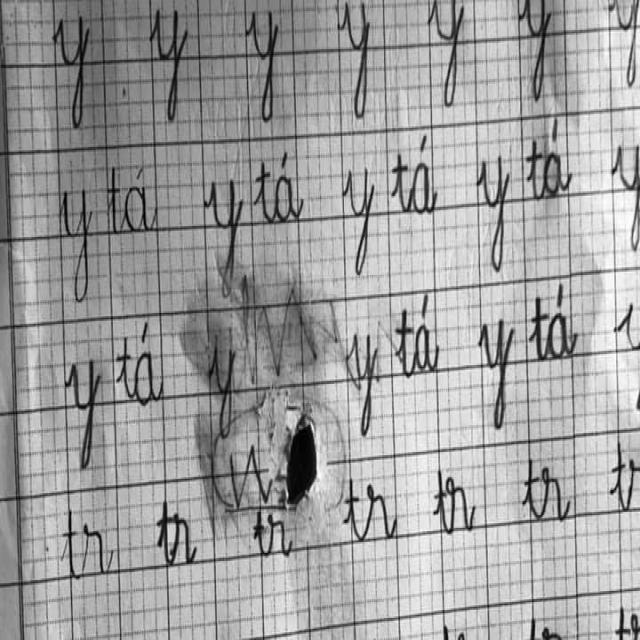 y y y y y y y
y tá y tá y tá y tá y
y tá y y tá y tá
tr tr tr tr tr tr tr